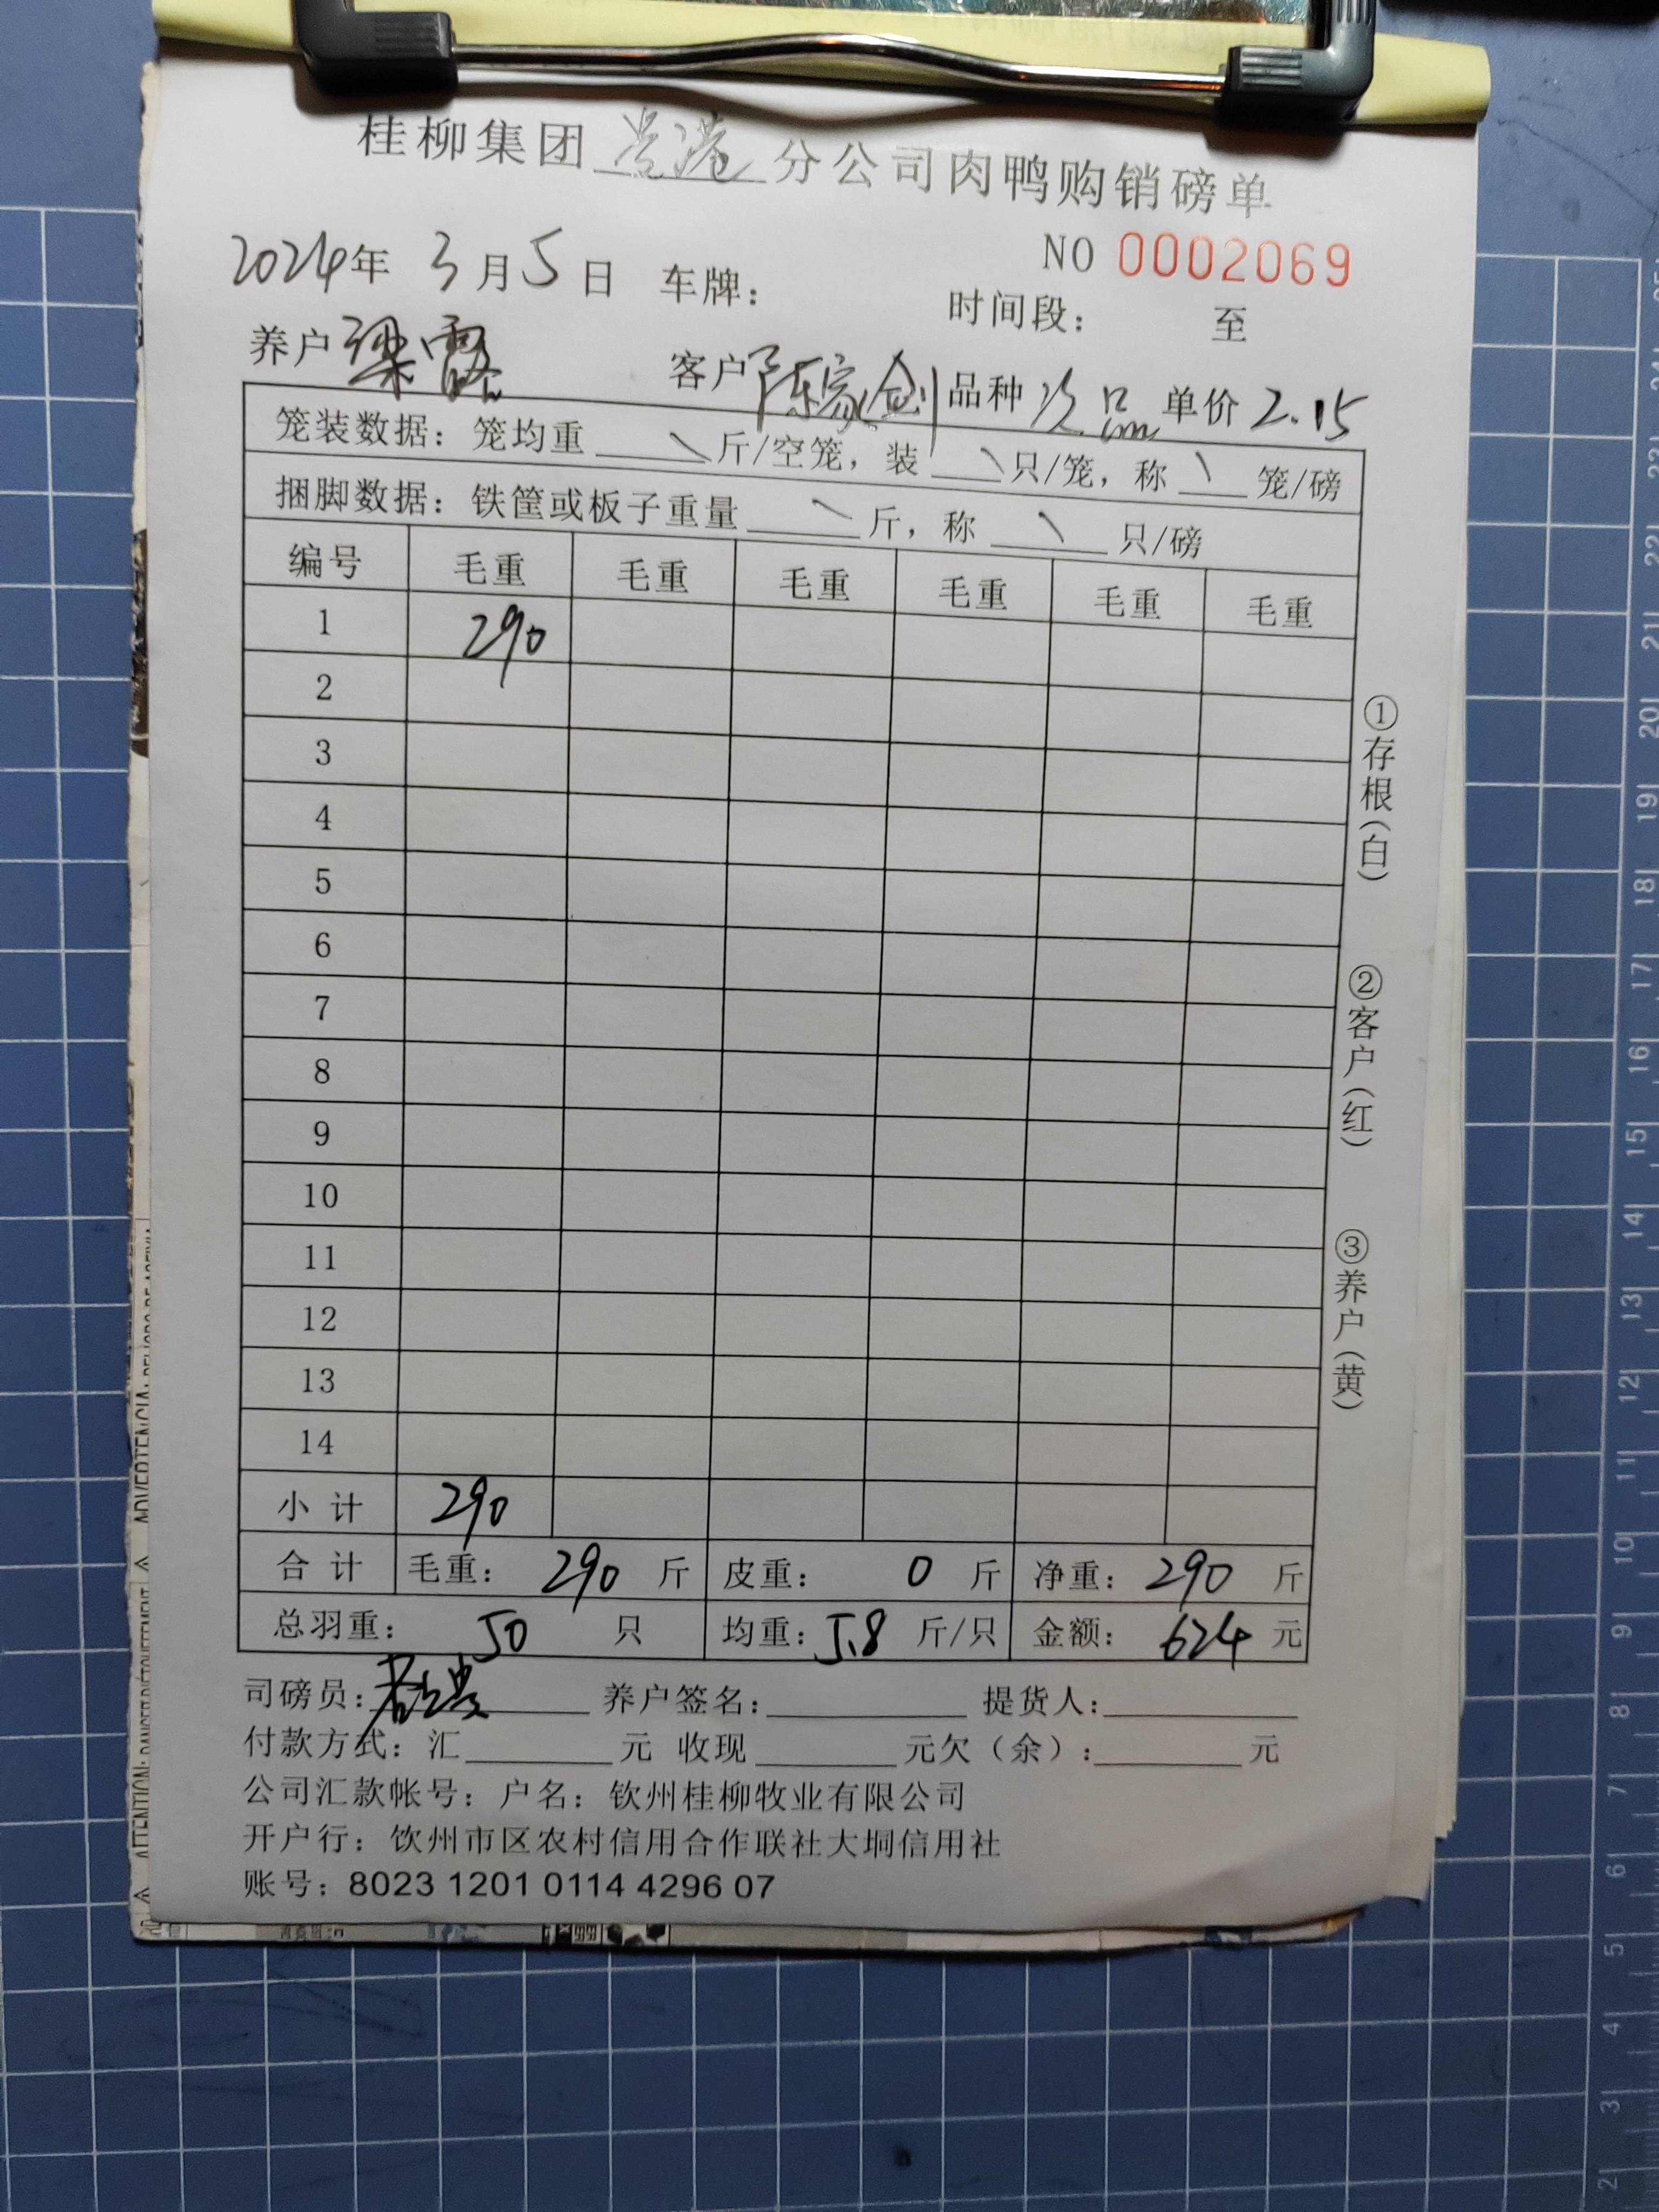 桂柳集团 贵港 分公司肉鸭购销磅单
NO 0002069
2024年 3月5日 车牌: 时间段: 至
养户 梁 客户 陈家剑 品种 次品 单价 2.15
笼装数据: 笼均重 \ 斤/空笼, 装 \ 只/笼, 称 \ 笼/磅
捆脚数据: 铁筐或板子重量 \ 斤, 称 \ 只/磅
编号 毛重 毛重 毛重 毛重 毛重 毛重
1 290
2
3
4
5
6
7
8
9
10
11
12
13
14
小计 290
合计 毛重: 290 斤 皮重: 0 斤 净重: 290 斤
总羽重: 50 只 均重: 5.8 斤/只 金额: 624 元
司磅员: 养户签名: 提货人:
付款方式: 汇 元 收现 元欠(余): 元
公司汇款帐号: 户名: 钦州桂柳牧业有限公司
开户行: 饮州市区农村信用合作联社大垌信用社
账号: 8023 1201 0114 4296 07
①存根(白)
②客户(红)
③养户(黄)
21
20
19
18
17
16
15
14
13
12
11
10
9
8
7
6
5
4
3
2